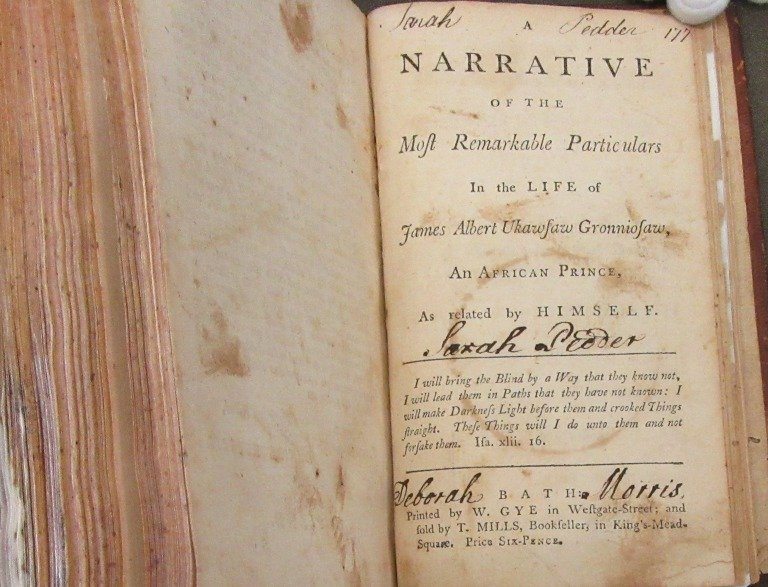 Sarah A Pedder 177
NARRATIVE
OF THE
Moſt Remarkable Particulars
In the LIFE of
James Albert Ukawſaw Gronnioſaw,
An AFRICAN PRINCE,
As related by HIMSELF.
Sarah Pedder
I will bring the Blind by a Way that they know not,
I will lead them in Paths that they have not known: I
will make Darkneſs Light before them and crooked Things
ſtraight. Theſe Things will I do unto them and not
forſake them. Iſa. xlii. 16.
Deborah BATH: Morris
Printed by W. GYE in Weſtgate-Street; and
ſold by T. MILLS, Bookſeller, in King's-Mead-
Square. Price SIX-PENCE.